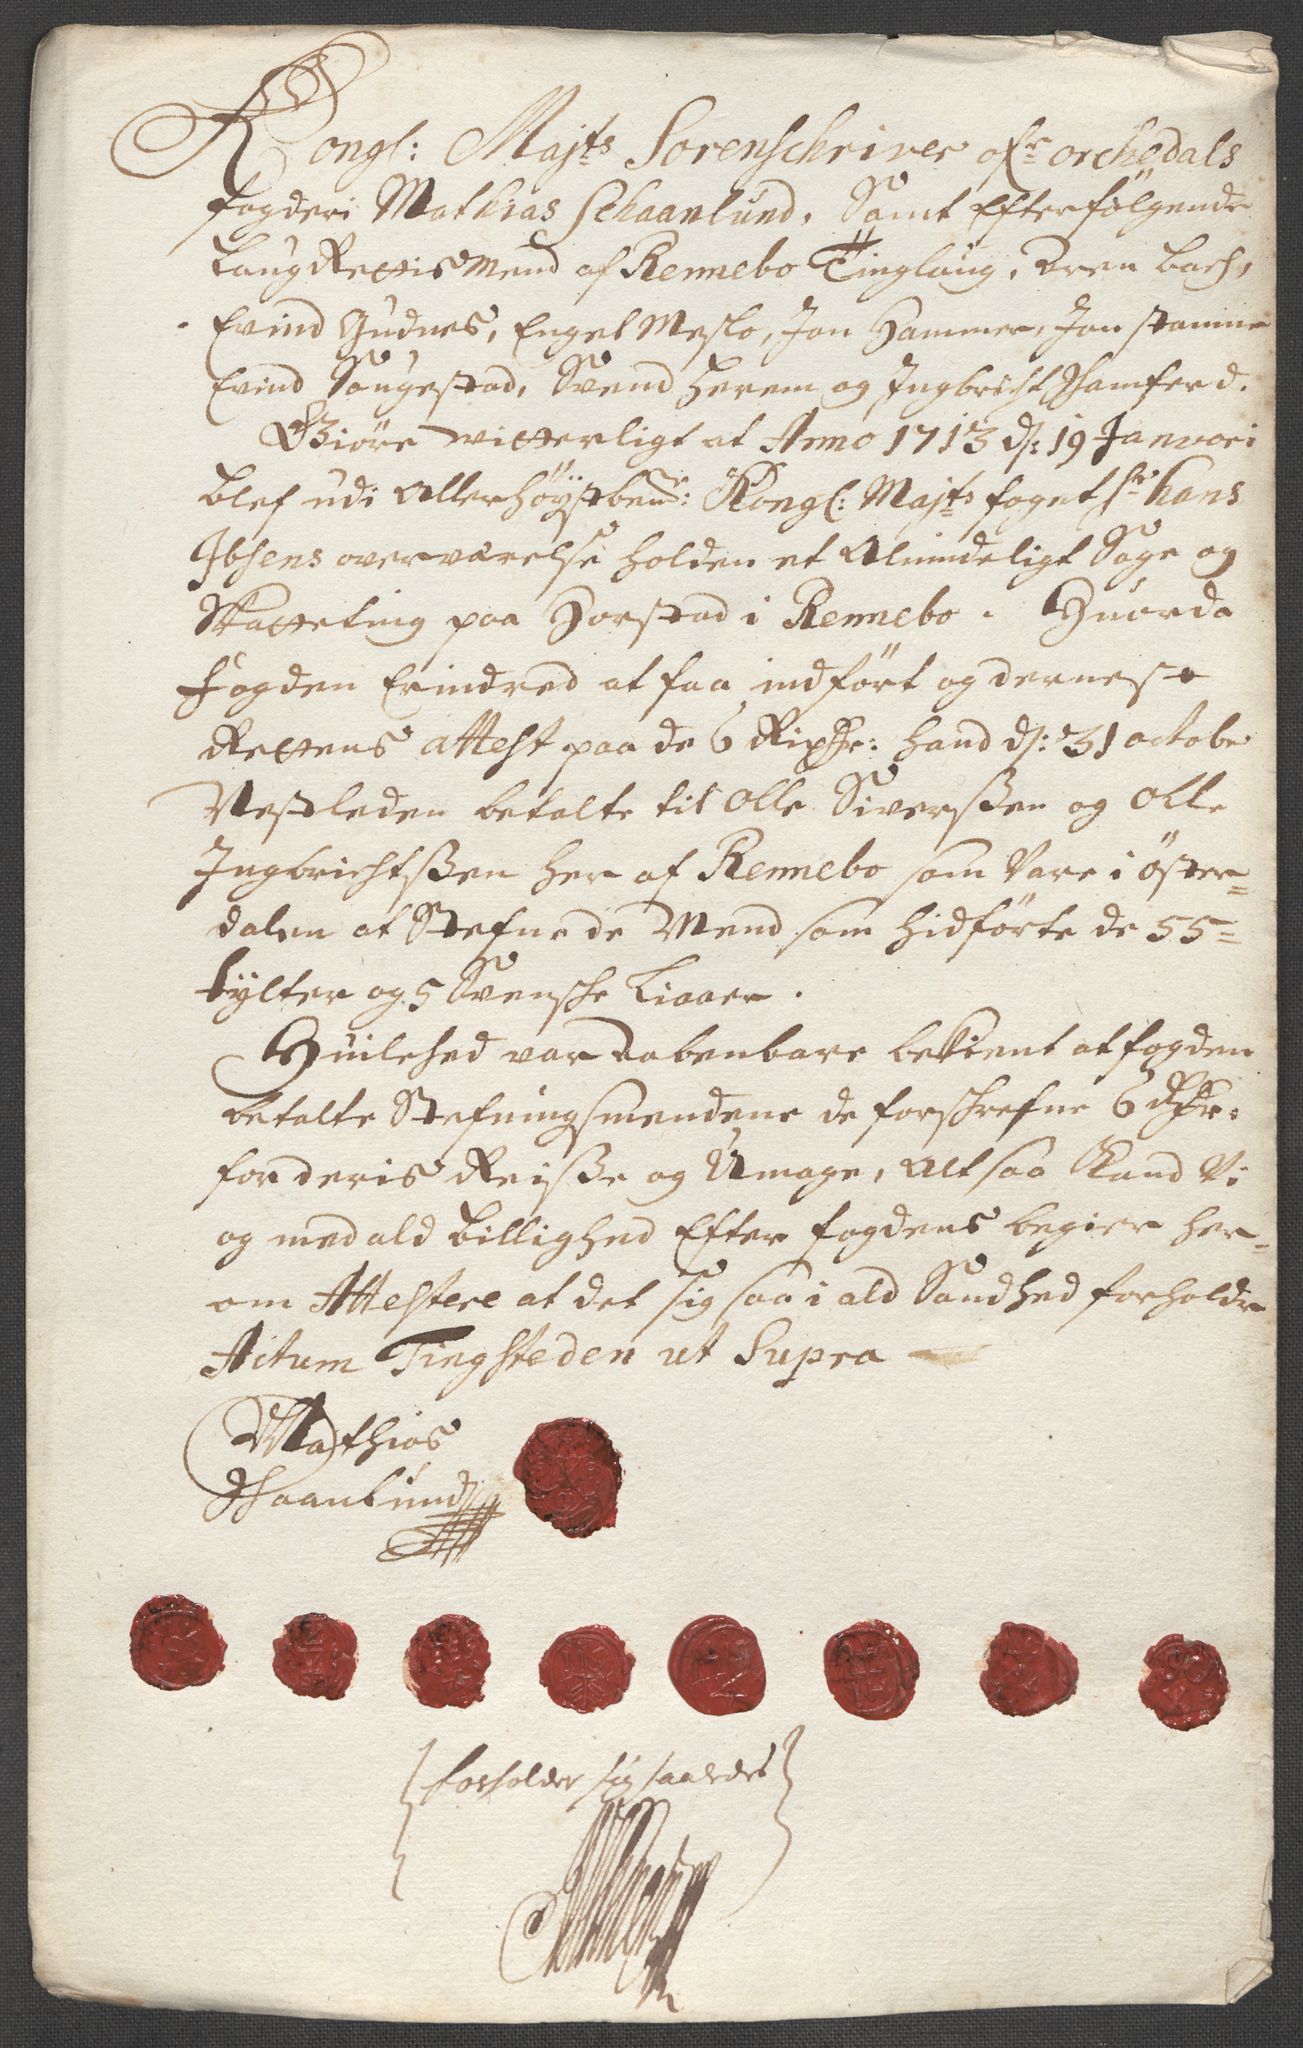 Kongl: Majts Sorenschriver ofr orchedals
fogderi Mathias Schaanlund, Samt Efterfølgende
LaugRettis Mend af Rennebo Tinglaug, Oren Bach,
Evind Gudnes, Engel Meslo, Jon Hammer, Jon stamne
Evind Saugestad, Svend Herrem og Ingbricht Shamferd.
Giøre witterligt at Anno 1713 ds: 19 Janvari
blef udi Allerhøystbemte: Kongl: Majts foget Sr Hans
Ibsens overværelse holden et Almindeligt Sage og
Skatteting paa Horstad i Rennebo. Huorda
Fogden Erindred at faa indført og dernest
Rettens attest paa de 6 Rixdr: hand ds: 31 octobr
Nestleden betalte til Olle Siverssen og Olle
Ingbrichtssen her af Rennebo som vare i Øster-
dalen at Stefne de Mend som hidførte de 55-
tylter og 5 Svensche Liaaer.
Huilched var aabenbare bekient at fogden
betalte Stefningsmendene de forschrefne 6 Rdr:
for deris Reisse og Umage, Alt saa Kand Vi
og med ald billighed Efter fogdens begier her-
om Attestere at det sig saa i ald Sandhed forholdr
Actum Tingsteden ut Supra
Mathias
Schaanlund
forholder sig saaledes